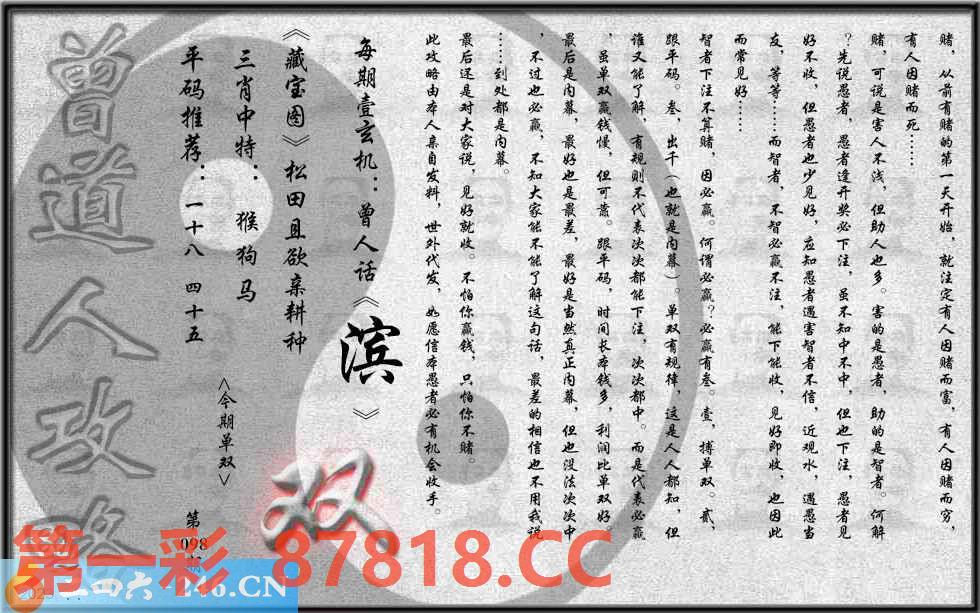 赌，从前有赌的第一天开始，就注定有人因赌而富，有人因赌而穷，
有人因赌而死……
赌，可说是害人不浅，但助人也多。害的是愚者，助的是智者。何解
？先说愚者，愚者逢开奖必下注，虽不知中不中，但也下注，愚者见
好不收，但愚者也少见好，应知愚者遇害智者不信，近观水，遇愚当
友，等等……而智者，不智必赢不注，能下能收，见好即收，也因此
而常见好……
智者下注不算赌，因必赢。何谓必赢？必赢有叁。壹，搏单双。贰，
跟平码。叁，出千（也就是内幕）。单双有规律，这是人人都知，但
谁又能了解，有规则不代表次次都能下注，次次都中。而是代表必赢
，虽单双赢钱慢，但可靠。跟平码，时间长本钱多，利润比单双好。
最后是内幕，最好也是最差，最好是当然真正内幕，但也没法次次中
，不过也必赢，不知大家能不能了解这句话，最差的相信也不用我说
……到处都是内幕。
最后还是对大家说，见好就收。不怕你赢钱，只怕你不赌。
此攻略由本人亲自发料，世外代发，如愿信本愚者必有机会收手。
每期壹玄机：曾人话《滨》
《藏宝图》松田且欲亲耕种
三肖中特：猴狗马
平码推荐：一十八 四十五
<今期单双>
双
第
098
期
曾道人攻略
第一彩 87818.CC
二四六 246.CN